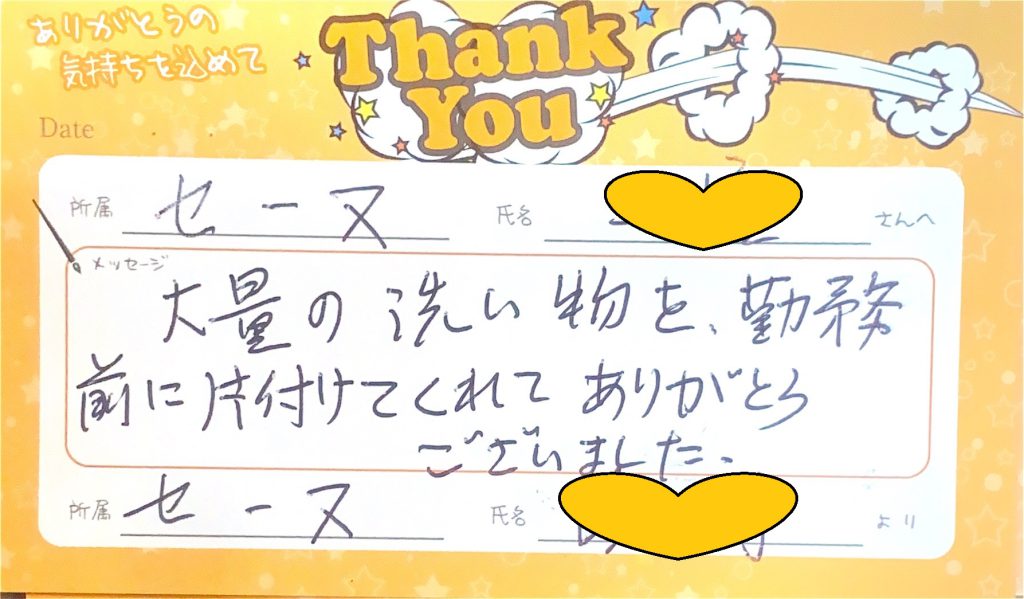 ありがとうの
気持ちを込めて
Thank
You
Date
所属 セーヌ 氏名 さんへ
メッセージ
大量の洗い物を、勤務
前に片付けてくれてありがとう
ございました。
所属 セーヌ 氏名 より